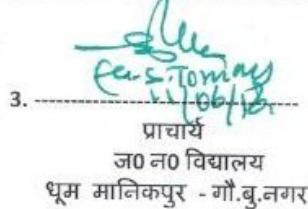 S. Tomar
11/06/18
3. ------------------------------
प्राचार्य
ज0 न0 विद्यालय
धूम मानिकपुर - गौ.बु.नगर